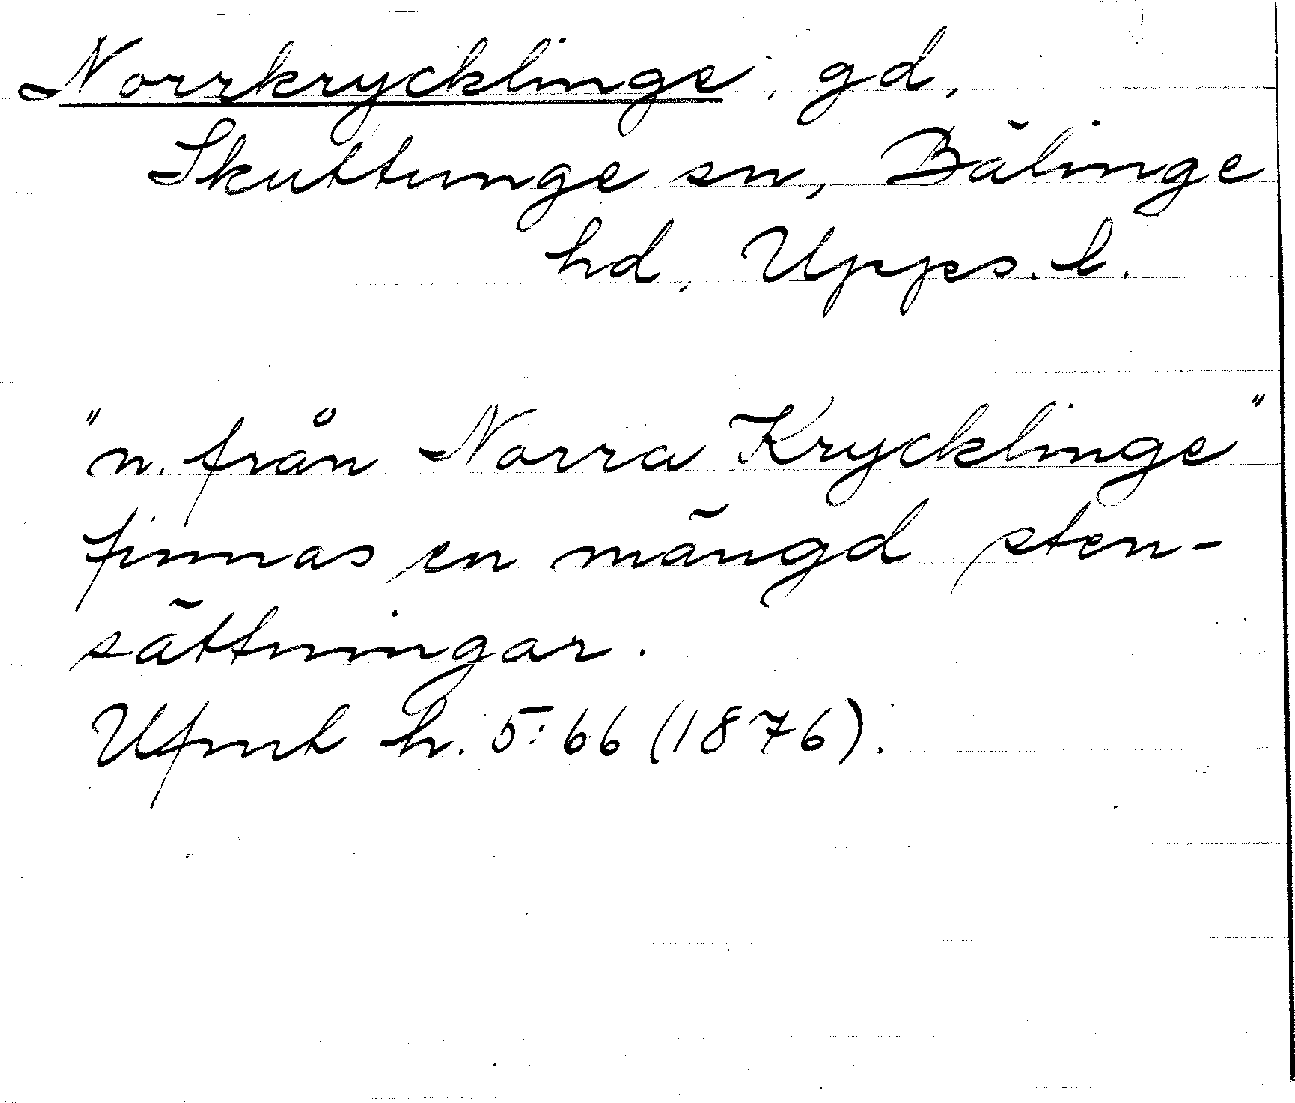 Norrkrycklinge, gd,
Skuttunge sn, Bälinge
hd, Upps. l.
"n. från Norra Krycklinge"
finnas en mängd sten-
sättningar.
Ufmt h. 5:66 (1876).